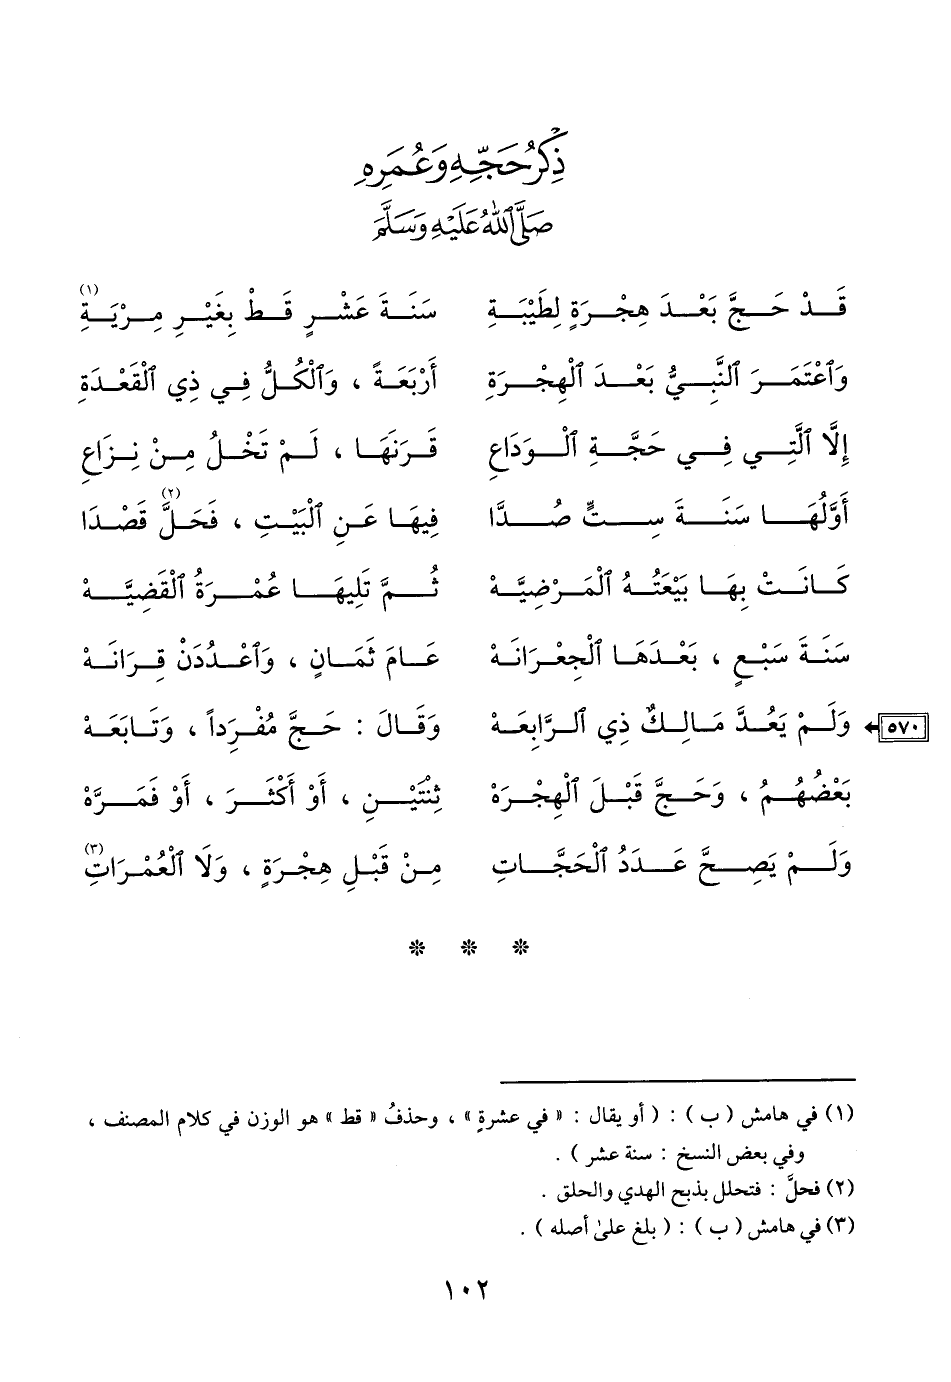 ذِكْرُ حَجِّهِ وَعُمَرِهِ
صَلَّى ٱللهُ عَلَيْهِ وَسَلَّمَ
قَدْ حَجَّ بَعْدَ هِجْرَةٍ لِطَيْبَةِ سَنَةَ عَشْرٍ قَطْ بِغَيْرِ مِرْيَةِ(١)
وَٱعْتَمَرَ ٱلنَّبِيُّ بَعْدَ ٱلْهِجْرَةِ أَرْبَعَةً ، وَٱلْكُلُّ فِي ذِي ٱلْقَعْدَةِ
إِلَّا ٱلَّتِي فِي حَجَّةِ ٱلْوَدَاعِ قَرَنَهَا ، لَمْ تَخْلُ مِنْ نِزَاعِ
أَوَّلُهَا سَنَةَ سِتٍّ صُدَّا فِيهَا عَنِ ٱلْبَيْتِ ، فَحَلَّ(٢) قَصْدَا
كَانَتْ بِهَا بَيْعَتُهُ ٱلْمَرْضِيَّهْ ثُمَّ تَلِيهَا عُمْرَةُ ٱلْقَضِيَّهْ
سَنَةَ سَبْعٍ ، بَعْدَهَا ٱلْجِعْرَانَهْ عَامَ ثَمَانٍ ، وَٱعْدُدَنْ قِرَانَهْ
٥٧٠ وَلَمْ يَعُدَّ مَالِكٌ ذِي ٱلرَّابِعَهْ وَقَالَ : حَجَّ مُفْرَداً ، وَتَابَعَهْ
بَعْضُهُمُ ، وَحَجَّ قَبْلَ ٱلْهِجْرَهْ ثِنْتَيْنِ ، أَوْ أَكْثَرَ ، أَوْ فَمَرَّهْ
وَلَمْ يَصِحَّ عَدَدُ ٱلْحَجَّاتِ مِنْ قَبْلِ هِجْرَةٍ ، وَلَا ٱلْعُمْرَاتِ(٣)
* * *
(١) في هامش ( ب ) : ( أو يقال : « في عشرةٍ » ، وحذفُ « قط » هو الوزن في كلام المصنف ،
وفي بعض النسخ : سنة عشر ) .
(٢) فحلَّ : فتحلل بذبح الهدي والحلق .
(٣) في هامش ( ب ) : ( بلغ علىٰ أصله ) .
١٠٢